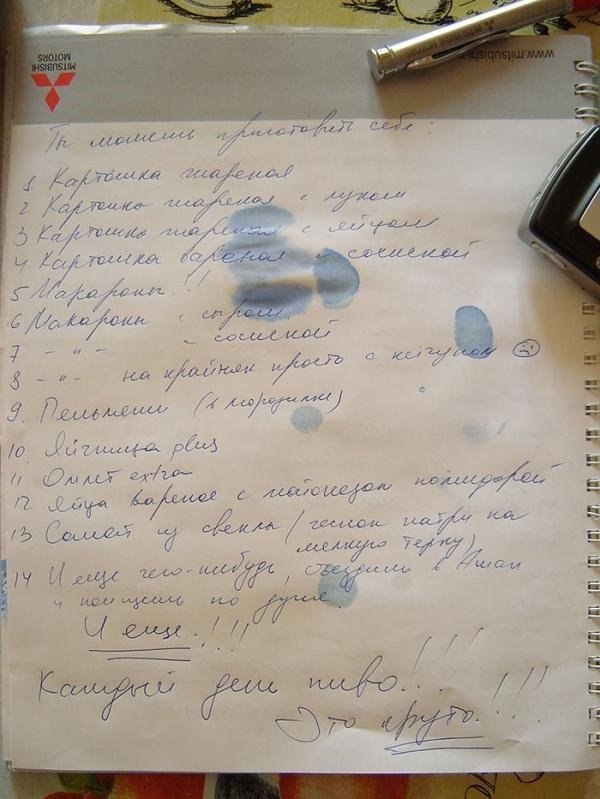 MITSUBISHI
MOTORS
www.mitsubishi-
MITSUBISHI MOTORS
Ты можешь приготовить себе:
1 Картошка жареная
2 Картошка жареная с луком
3 Картошка жареная с яйцом
4 Картошка вареная с сосиской
5 Макароны!!
6 Макароны с сыром
7 -"- с сосиской
8 -"- на крайняк просто с кетчупом ☹
9. Пельмени (в морозилке)
10. Яичница plus
11 Омлет extra
12 Яйца вареное с майонезом помидорой
13 Салат из свеклы (чеснок натри на
мелкую терку)
14 И еще чего-нибудь, съездишь в Ашан
и поищешь по душе.
И еще!!!!
Каждый день пиво!... !!!
Это круто.!!!